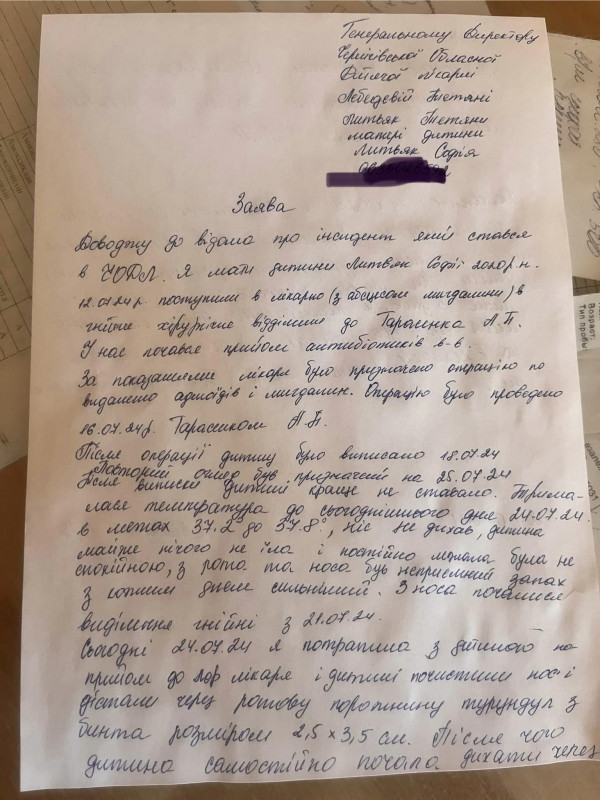 Генеральному Директору
Чернігівської Обласної
Дитячої лікарні
Лебедєвій Тетяні
Литвяк Тетяни
матері дитини
Литвяк Софія
Заява
Доводжу до відома про інсидент який стався
в ЧОДЛ. Я мати дитини Литвяк Софії 2020р.н.
12.07.24р. поступили в лікарню (з абсцесом мигдалини) в
гнійне хірургічне відділення до А.П.
У нас почався прийом антибіотиків в-в.
За показаннями лікаря було призначено операцію по
видаленю аденоїдів і мигдалин. Операцію було проведено
16.07.24р. Тарасиком А.П.
Після операції дитину було виписано 18.07.24
Повторний огляд був призначений на 25.07.24
Після виписки дитині краще не ставало. Трима-
лася температура до сьогоднішнього дня 24.07.24.
в межах 37.2° до 37.8°, ніс не дихав, дитина
майже нічого не їла і постійно була не
спокійною, з рота та носа був неприємний запах
з кожним днем сильніший. З носа почалися
виділення гнійні з 21.07.24.
Сьогодні 24.07.24 я потрапила з дитиною на
прийом до лор лікаря і дитині почистили нос і
дістали через ротову порожнину турундул з
бинта розміром 2,5 × 3,5 см. Після чого
дитина самостійно почала дихати через
Возраст:
Тип пробы